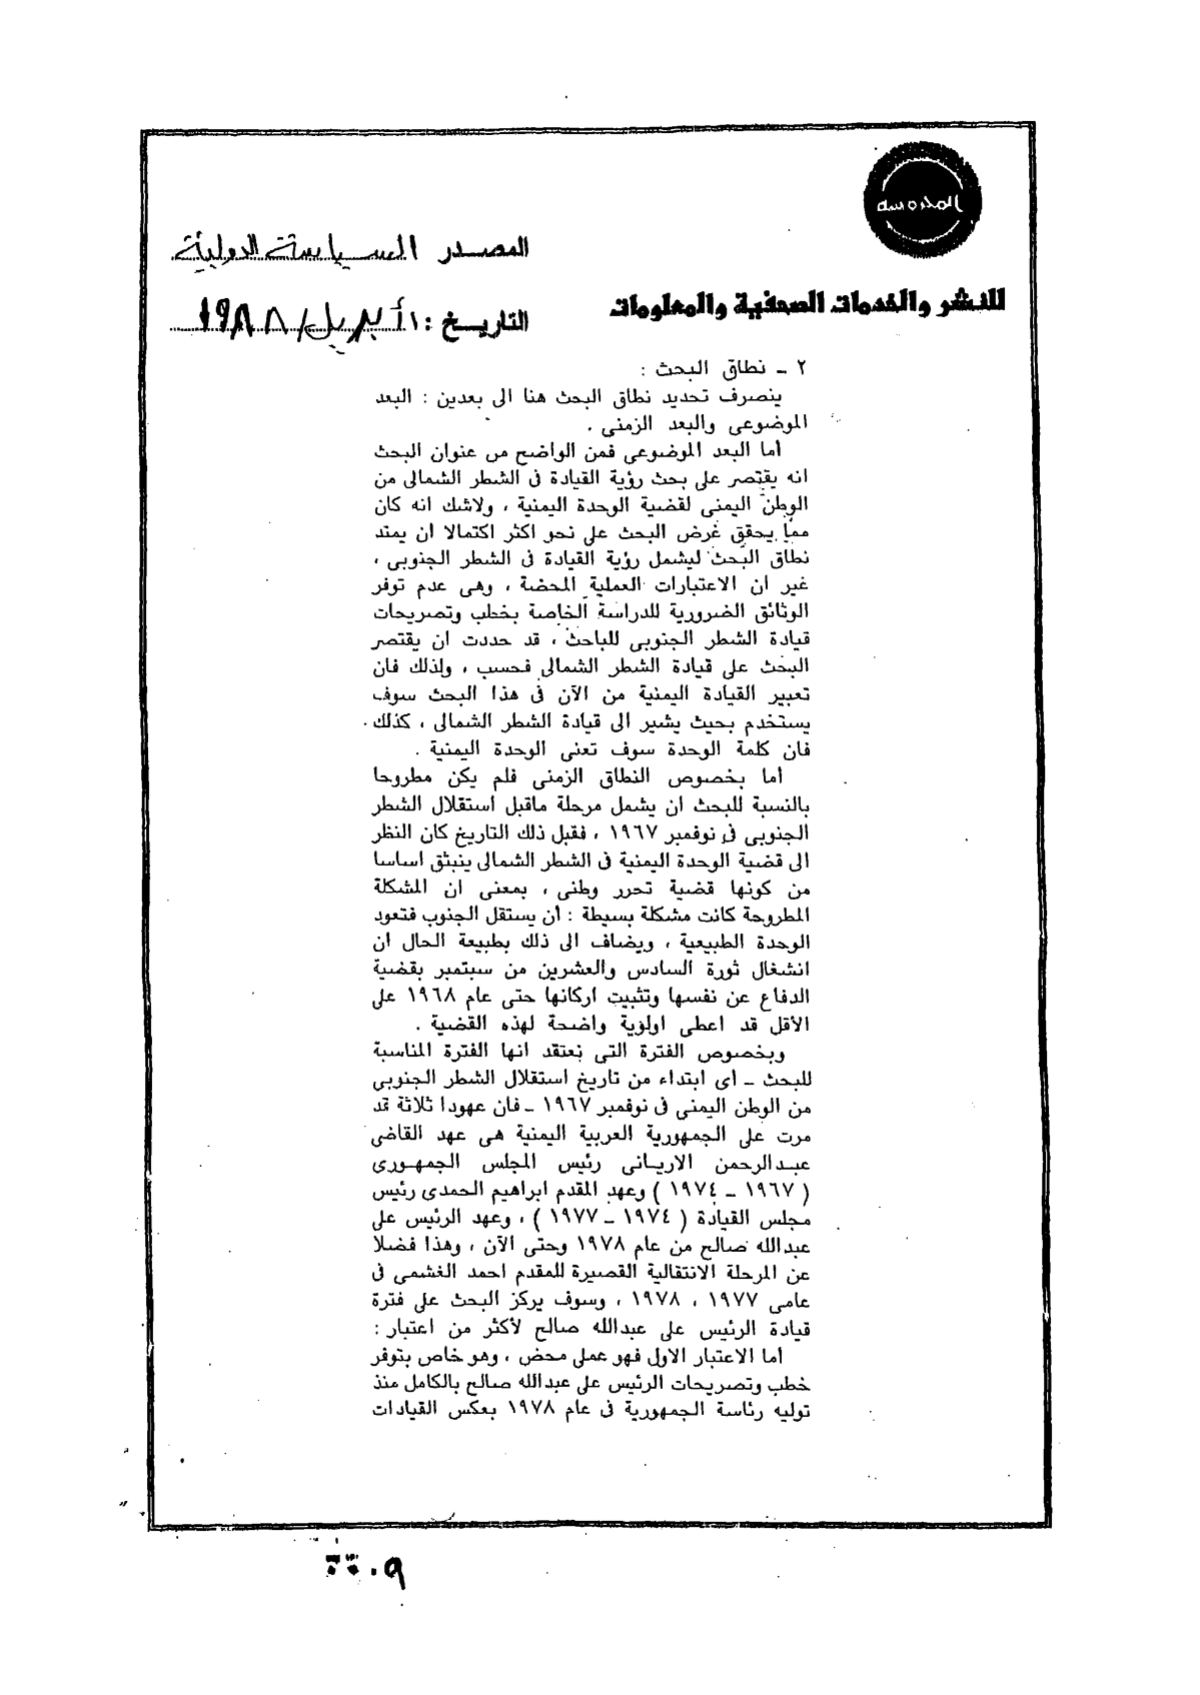 المدوسه
للنشر والخدمات الصحفية والمعلومات
المصدر السياسة الدولية
التاريخ : ١ أبريل ١٩٨٨
٢ ـ نطاق البحث :
ينصرف تحديد نطاق البحث هنا الى بعدين : البعد
الموضوعى والبعد الزمنى .
أما البعد الموضوعى فمن الواضح من عنوان البحث
انه يقتصر على بحث رؤية القيادة فى الشطر الشمالى من
الوطن اليمنى لقضية الوحدة اليمنية ، ولاشك انه كان
مما يحقق غرض البحث على نحو اكثر اكتمالا ان يمتد
نطاق البحث ليشمل رؤية القيادة فى الشطر الجنوبى ،
غير ان الاعتبارات العملية المحضة ، وهى عدم توفر
الوثائق الضرورية للدراسة الخاصة بخطب وتصريحات
قيادة الشطر الجنوبى للباحث ، قد حددت ان يقتصر
البحث على قيادة الشطر الشمالى فحسب ، ولذلك فان
تعبير القيادة اليمنية من الآن فى هذا البحث سوف
يستخدم بحيث يشير الى قيادة الشطر الشمالى ، كذلك
فان كلمة الوحدة سوف تعنى الوحدة اليمنية .
أما بخصوص النطاق الزمنى فلم يكن مطروحا
بالنسبة للبحث ان يشمل مرحلة ماقبل استقلال الشطر
الجنوبى فى نوفمبر ١٩٦٧ ، فقبل ذلك التاريخ كان النظر
الى قضية الوحدة اليمنية فى الشطر الشمالى ينبثق اساسا
من كونها قضية تحرر وطنى ، بمعنى ان المشكلة
المطروحة كانت مشكلة بسيطة : أن يستقل الجنوب فتعود
الوحدة الطبيعية ، ويضاف الى ذلك بطبيعة الحال ان
انشغال ثورة السادس والعشرين من سبتمبر بقضية
الدفاع عن نفسها وتثبيت اركانها حتى عام ١٩٦٨ على
الأقل قد اعطى اولوية واضحة لهذه القضية .
وبخصوص الفترة التى نعتقد انها الفترة المناسبة
للبحث ـ اى ابتداء من تاريخ استقلال الشطر الجنوبى
من الوطن اليمنى فى نوفمبر ١٩٦٧ ـ فان عهودا ثلاثة قد
مرت على الجمهورية العربية اليمنية هى عهد القاضى
عبدالرحمن الاريانى رئيس المجلس الجمهورى
( ١٩٦٧ ـ ١٩٧٤ ) وعهد المقدم ابراهيم الحمدى رئيس
مجلس القيادة ( ١٩٧٤ ـ ١٩٧٧ ) ، وعهد الرئيس على
عبدالله صالح من عام ١٩٧٨ وحتى الآن ، وهذا فضلا
عن المرحلة الانتقالية القصيرة للمقدم احمد الغشمى فى
عامى ١٩٧٧ ، ١٩٧٨ ، وسوف يركز البحث على فترة
قيادة الرئيس على عبدالله صالح لأكثر من اعتبار :
أما الاعتبار الاول فهو عملى محض ، وهو خاص بتوفر
خطب وتصريحات الرئيس على عبدالله صالح بالكامل منذ
توليه رئاسة الجمهورية فى عام ١٩٧٨ بعكس القيادات